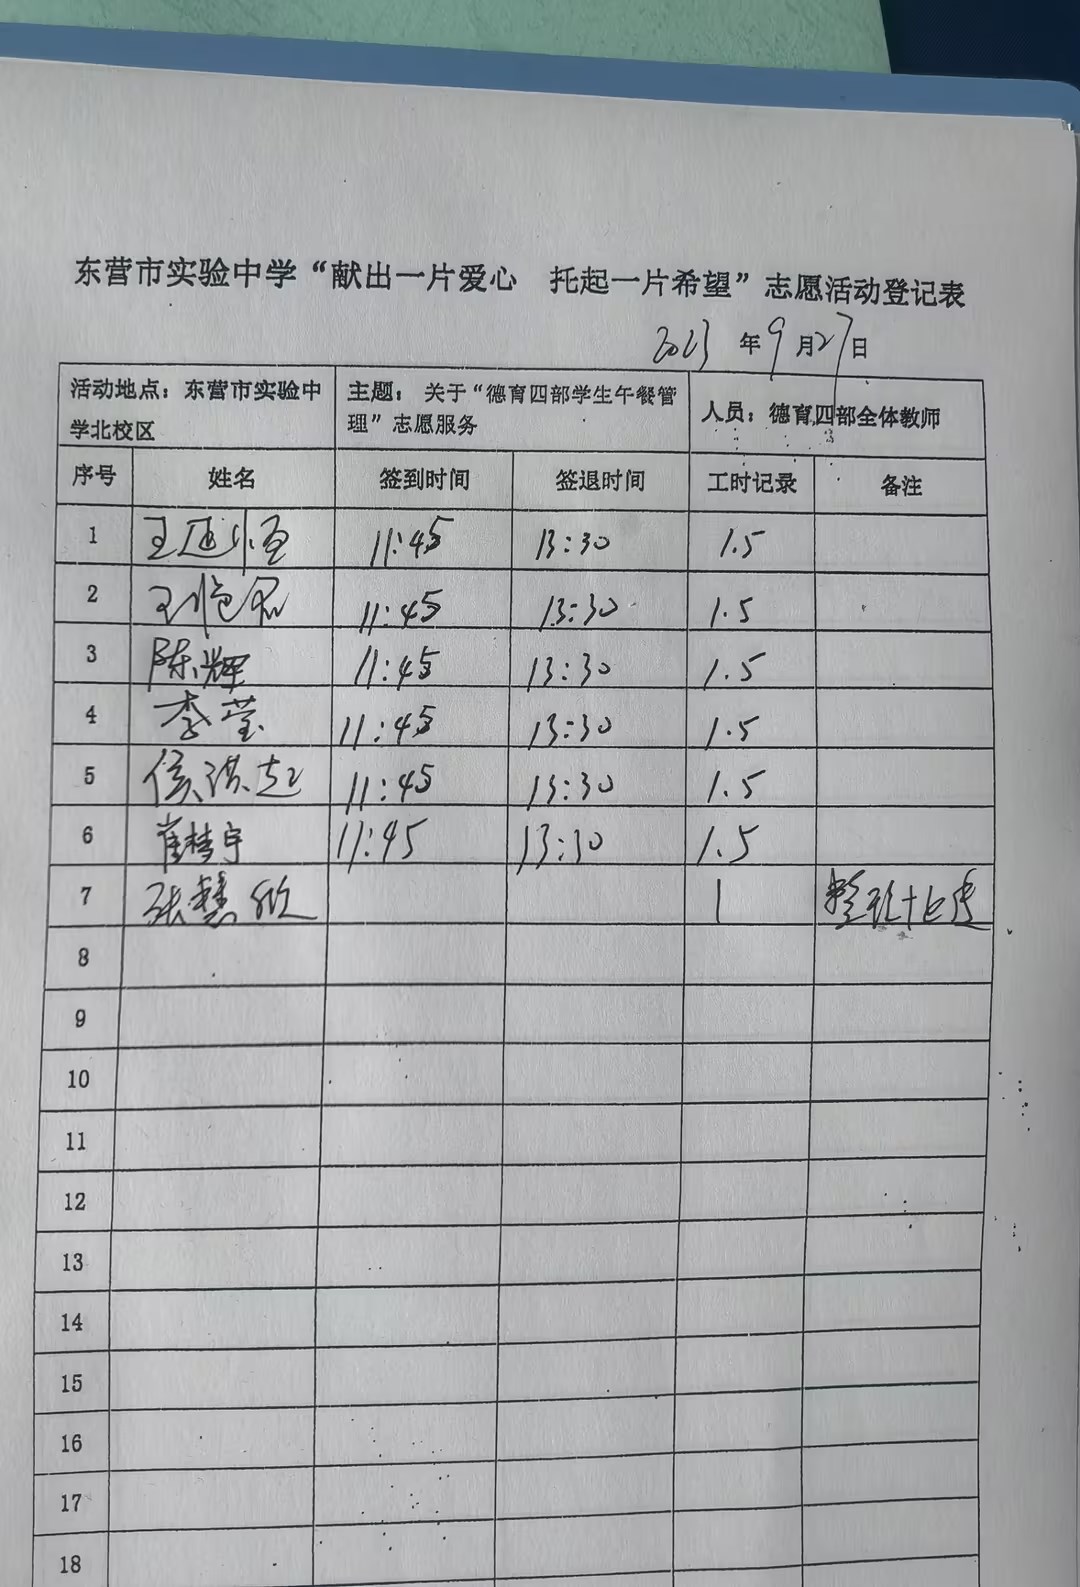 东营市实验中学“献出一片爱心 托起一片希望”志愿活动登记表
2023年9月27日
活动地点：东营市实验中学北校区 主题：关于“德育四部学生午餐管理”志愿服务 人员：德育四部全体教师
序号 姓名 签到时间 签退时间 工时记录 备注
1 11:45 13:30 1.5
2 11:45 13:30 1.5
3 陈辉 11:45 13:30 1.5
4 李莹 11:45 13:30 1.5
5 侯洪起 11:45 13:30 1.5
6 崔梦宇 11:45 13:30 1.5
7 张慧欣 1 整理
8
9
10
11
12
13
14
15
16
17
18